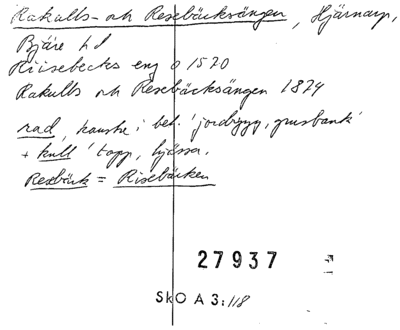 Rakulls- och Resebäcksängen, Hjärnarp,
Bjäre hd
Riisebecks eng o 1570
Rakulls och Resebäcksängen 1829
rad, kanske i bet. 'jordrygg, grusbank'
+ kull 'topp, hjässa.
Resbäck = Risebäcken
27937
SkO A 3:118